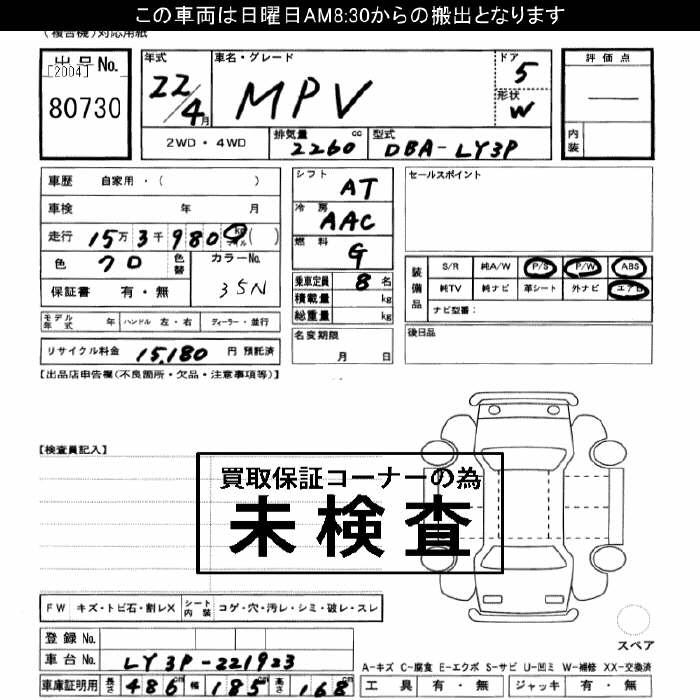 この車両は日曜日AM8:30からの搬出となります
(複合機)対応用紙
出品No.
[2004]
80730
年式 22/4月
車名・グレード MPV
ドア 5
形状 W
2WD・4WD
排気量 2260 cc
型式 DBA-LY3P
評価点
—
内装
車歴 自家用・( )
車検 年 月
走行 15万3千980 km マイル ( )
色 クロ 色替
カラーNo. 35N
保証書 有・無
モデル年式 年 ハンドル 左・右 ディーラー・並行
リサイクル料金 15,180 円 預託済
シフト AT
冷房 AAC
燃料 G
乗車定員 8 名
積載量 kg
総重量 kg
名変期限
月 日
セールスポイント
装備品
S/R 純A/W P/S P/W ABS
純TV 純ナビ 革シート 外ナビ エアB
ナビ型番:
後日品
【出品店申告欄(不良箇所・欠品・注意事項等)】
【検査員記入】
買取保証コーナーの為
未検査
FW キズ・トビ石・割レX シート内装 コゲ・穴・汚レ・シミ・破レ・スレ
登録No.
車台No. LY3P-221923
車庫証明用 長さ 486cm 幅 185cm 高さ 168cm
スペア
A-キズ C-腐食 E-エクボ S-サビ U-凹ミ W-補修 XX-交換済
工具 有・無 ジャッキ 有・無